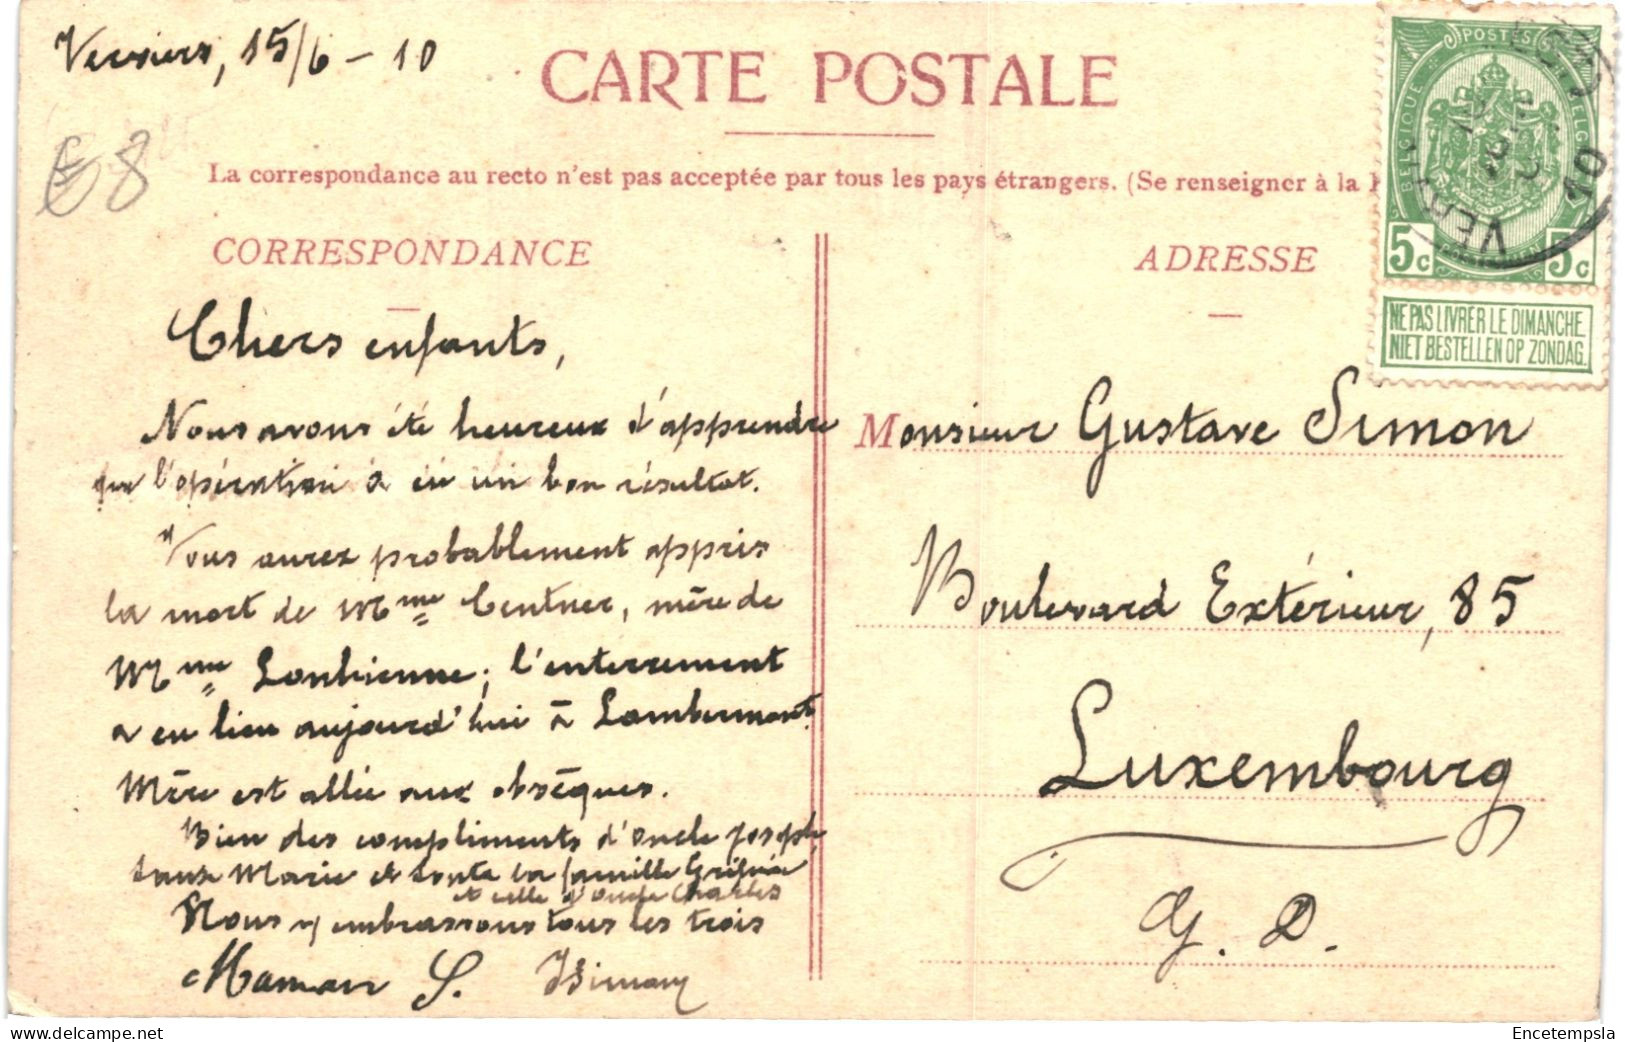 Verviers, 15/6 - 10
CARTE POSTALE
€8
La correspondance au recto n'est pas acceptée par tous les pays étrangers. (Se renseigner à la
POSTES
BELGIQUE
5c 5c
VERVIERS
10
NE PAS LIVRER LE DIMANCHE.
NIET BESTELLEN OP ZONDAG.
CORRESPONDANCE
Chers enfants,
Nous avons été heureux d'apprendre
que l'opération à eu un bon résultat.
Vous aurez probablement appris
la mort de Mme Centner, mère de
Mme Lonhienne; l'enterrement
a eu lieu aujourd'hui à Lambermont.
Mère est allée aux obsèques.
Bien des compliments d'oncle Joseph,
tante Marie et toute la famille
et celle d'oncle Charles
Nous vs embrassons tous les trois
Maman S.
ADRESSE
Monsieur Gustave Simon
Boulevard Extérieur, 85
Luxembourg
G. D.
Encetempsla